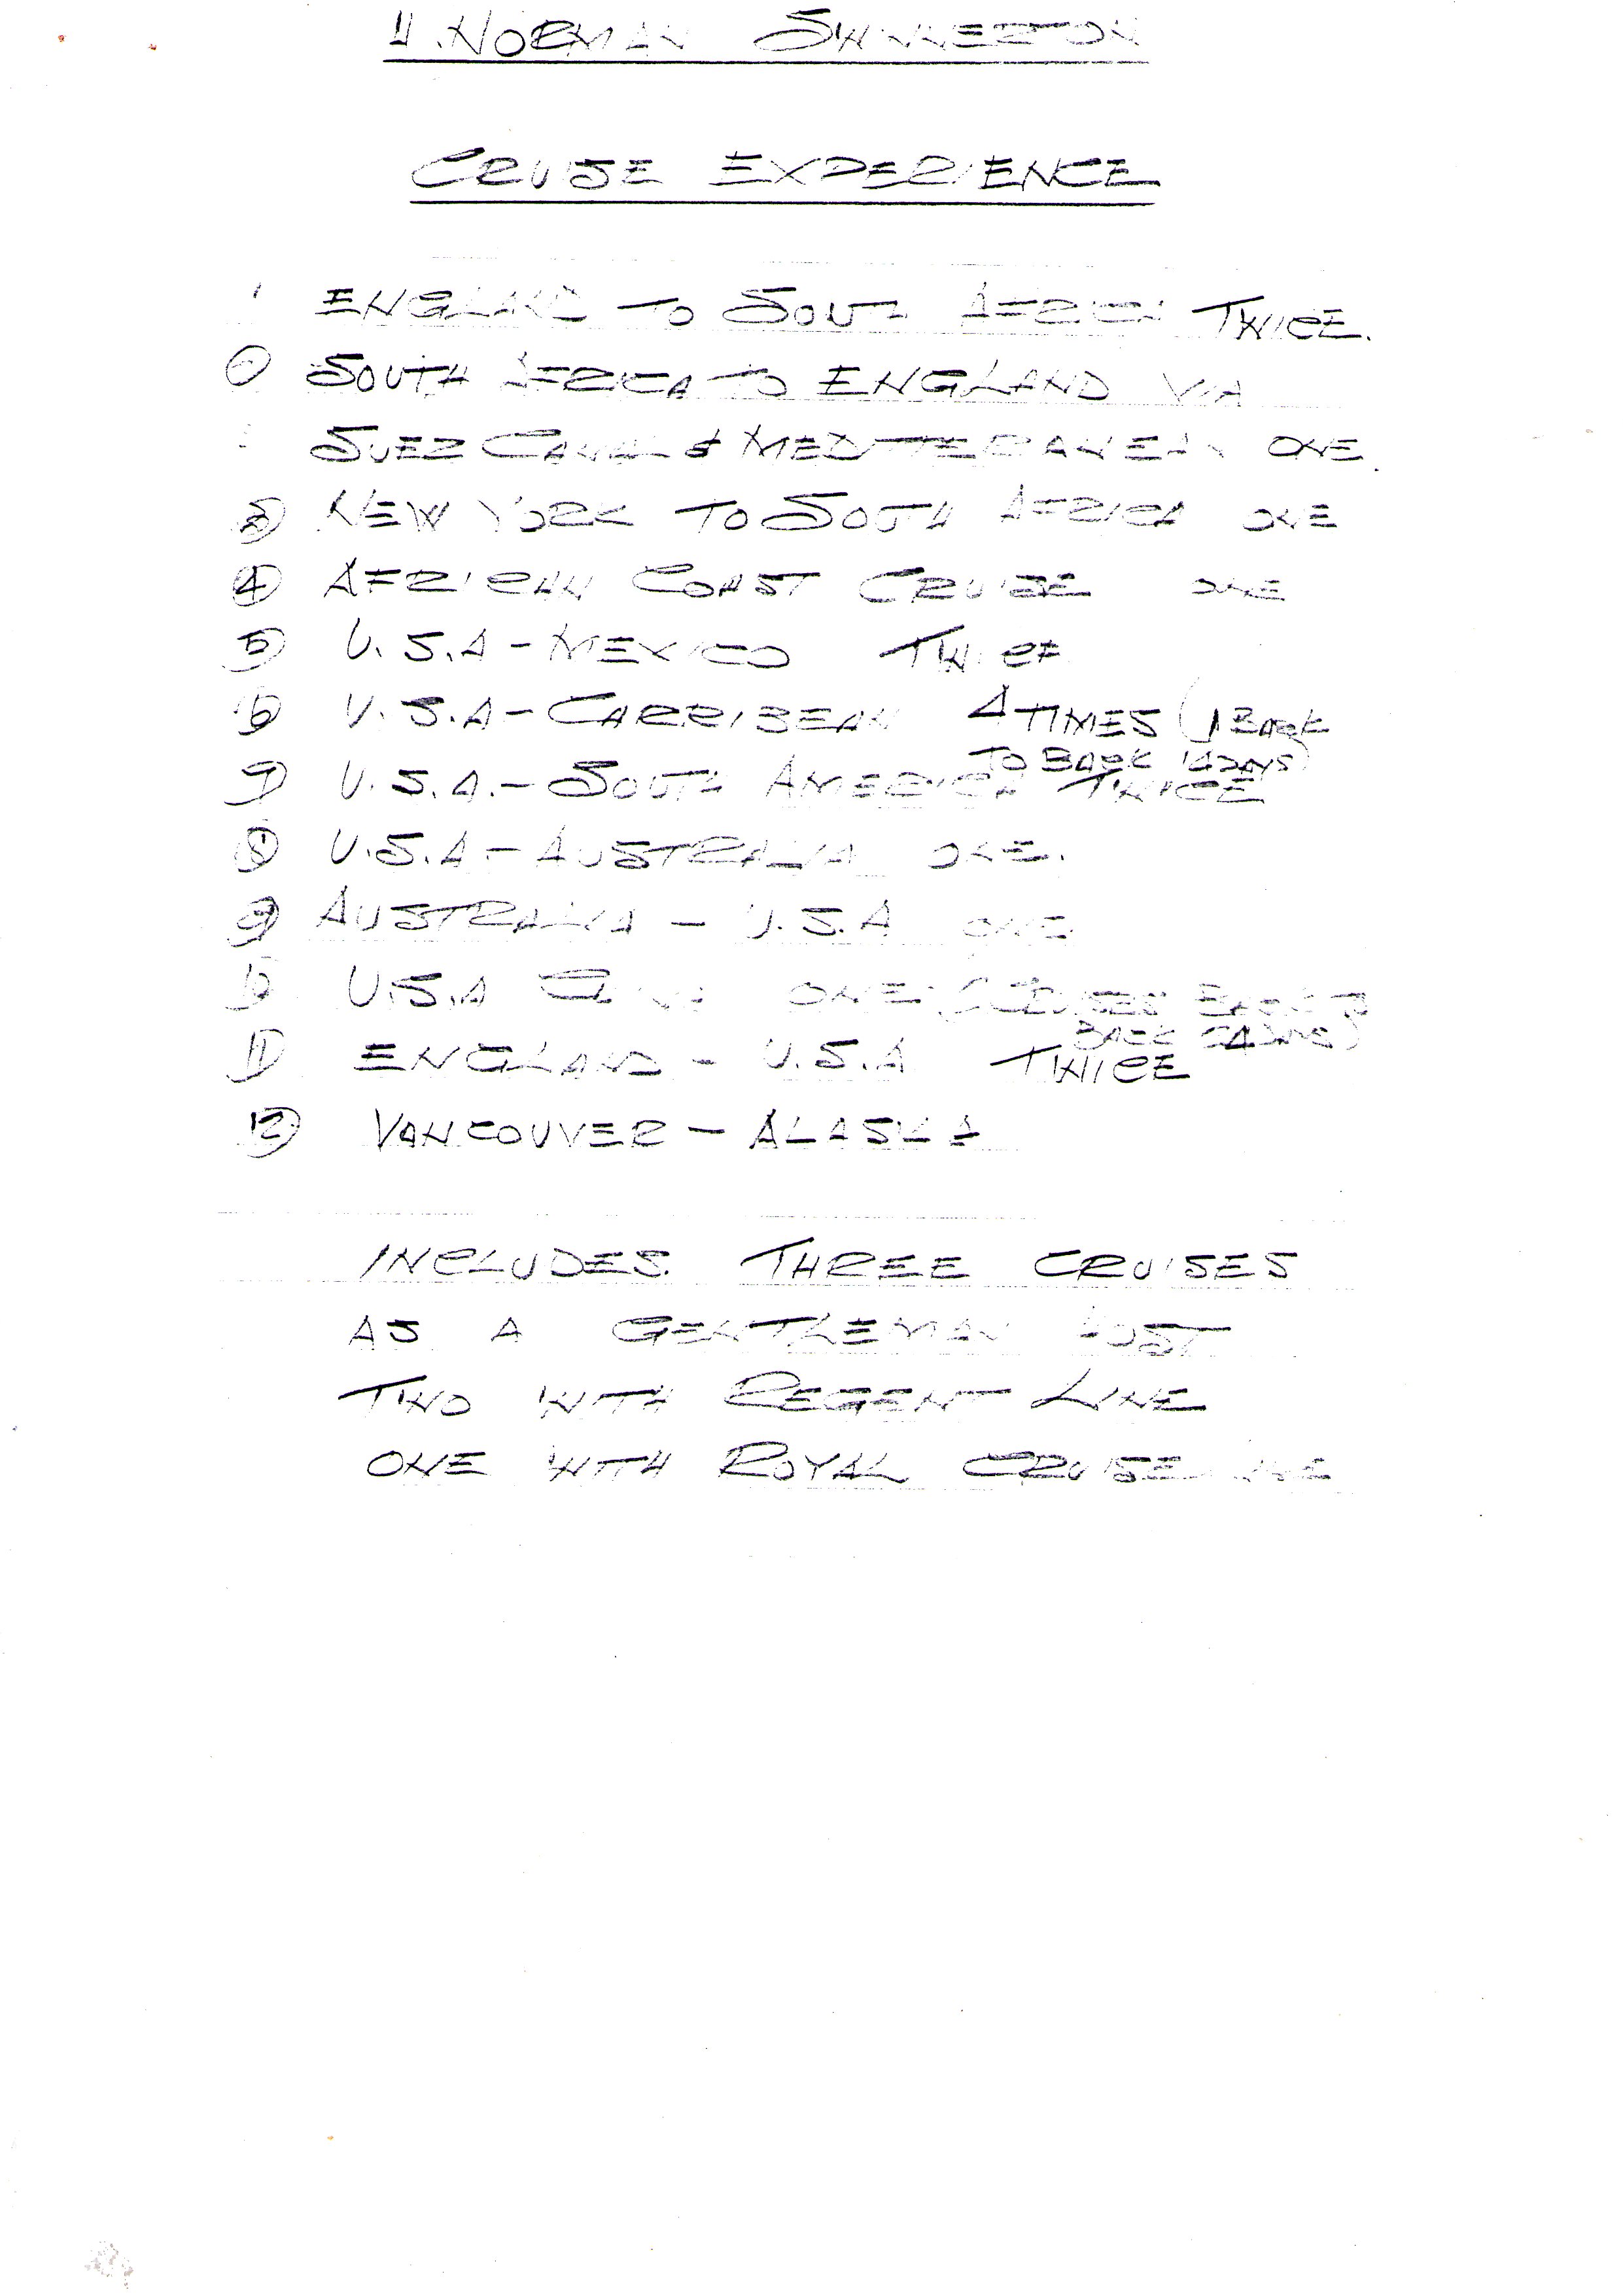 NORMAN
CRUISE EXPERIENCE
ENGLAND TO SOUTH AFRICA TWICE.
SOUTH AFRICA TO ENGLAND VIA
SUEZ CANAL & MEDITTERANEAN ONE.
③ NEW YORK TO SOUTH AFRICA ONE
④ AFRICAN COAST CRUISE ONE
⑤ U.S.A - MEXICO TWICE
⑥ U.S.A - CARRIBEAN 4 TIMES (1 BACK
TO BACK 14 DAYS)
⑦ U.S.A. - SOUTH AMERICA TWICE
⑧ U.S.A - AUSTRALIA ONE.
⑨ AUSTRALIA - U.S.A ONE
⑩ U.S.A ONE BACK TO
BACK DAYS)
⑪ ENGLAND - U.S.A TWICE
⑫ VANCOUVER - ALASKA
INCLUDES THREE CRUISES
AS A GENTLEMAN HOST
TWO WITH REGENT LINE
ONE WITH ROYAL CRUISE LINE